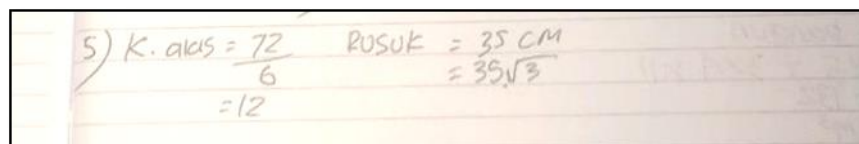 5) K. alas = 72/6 RUSUK = 35 CM
= 35√3
= 12